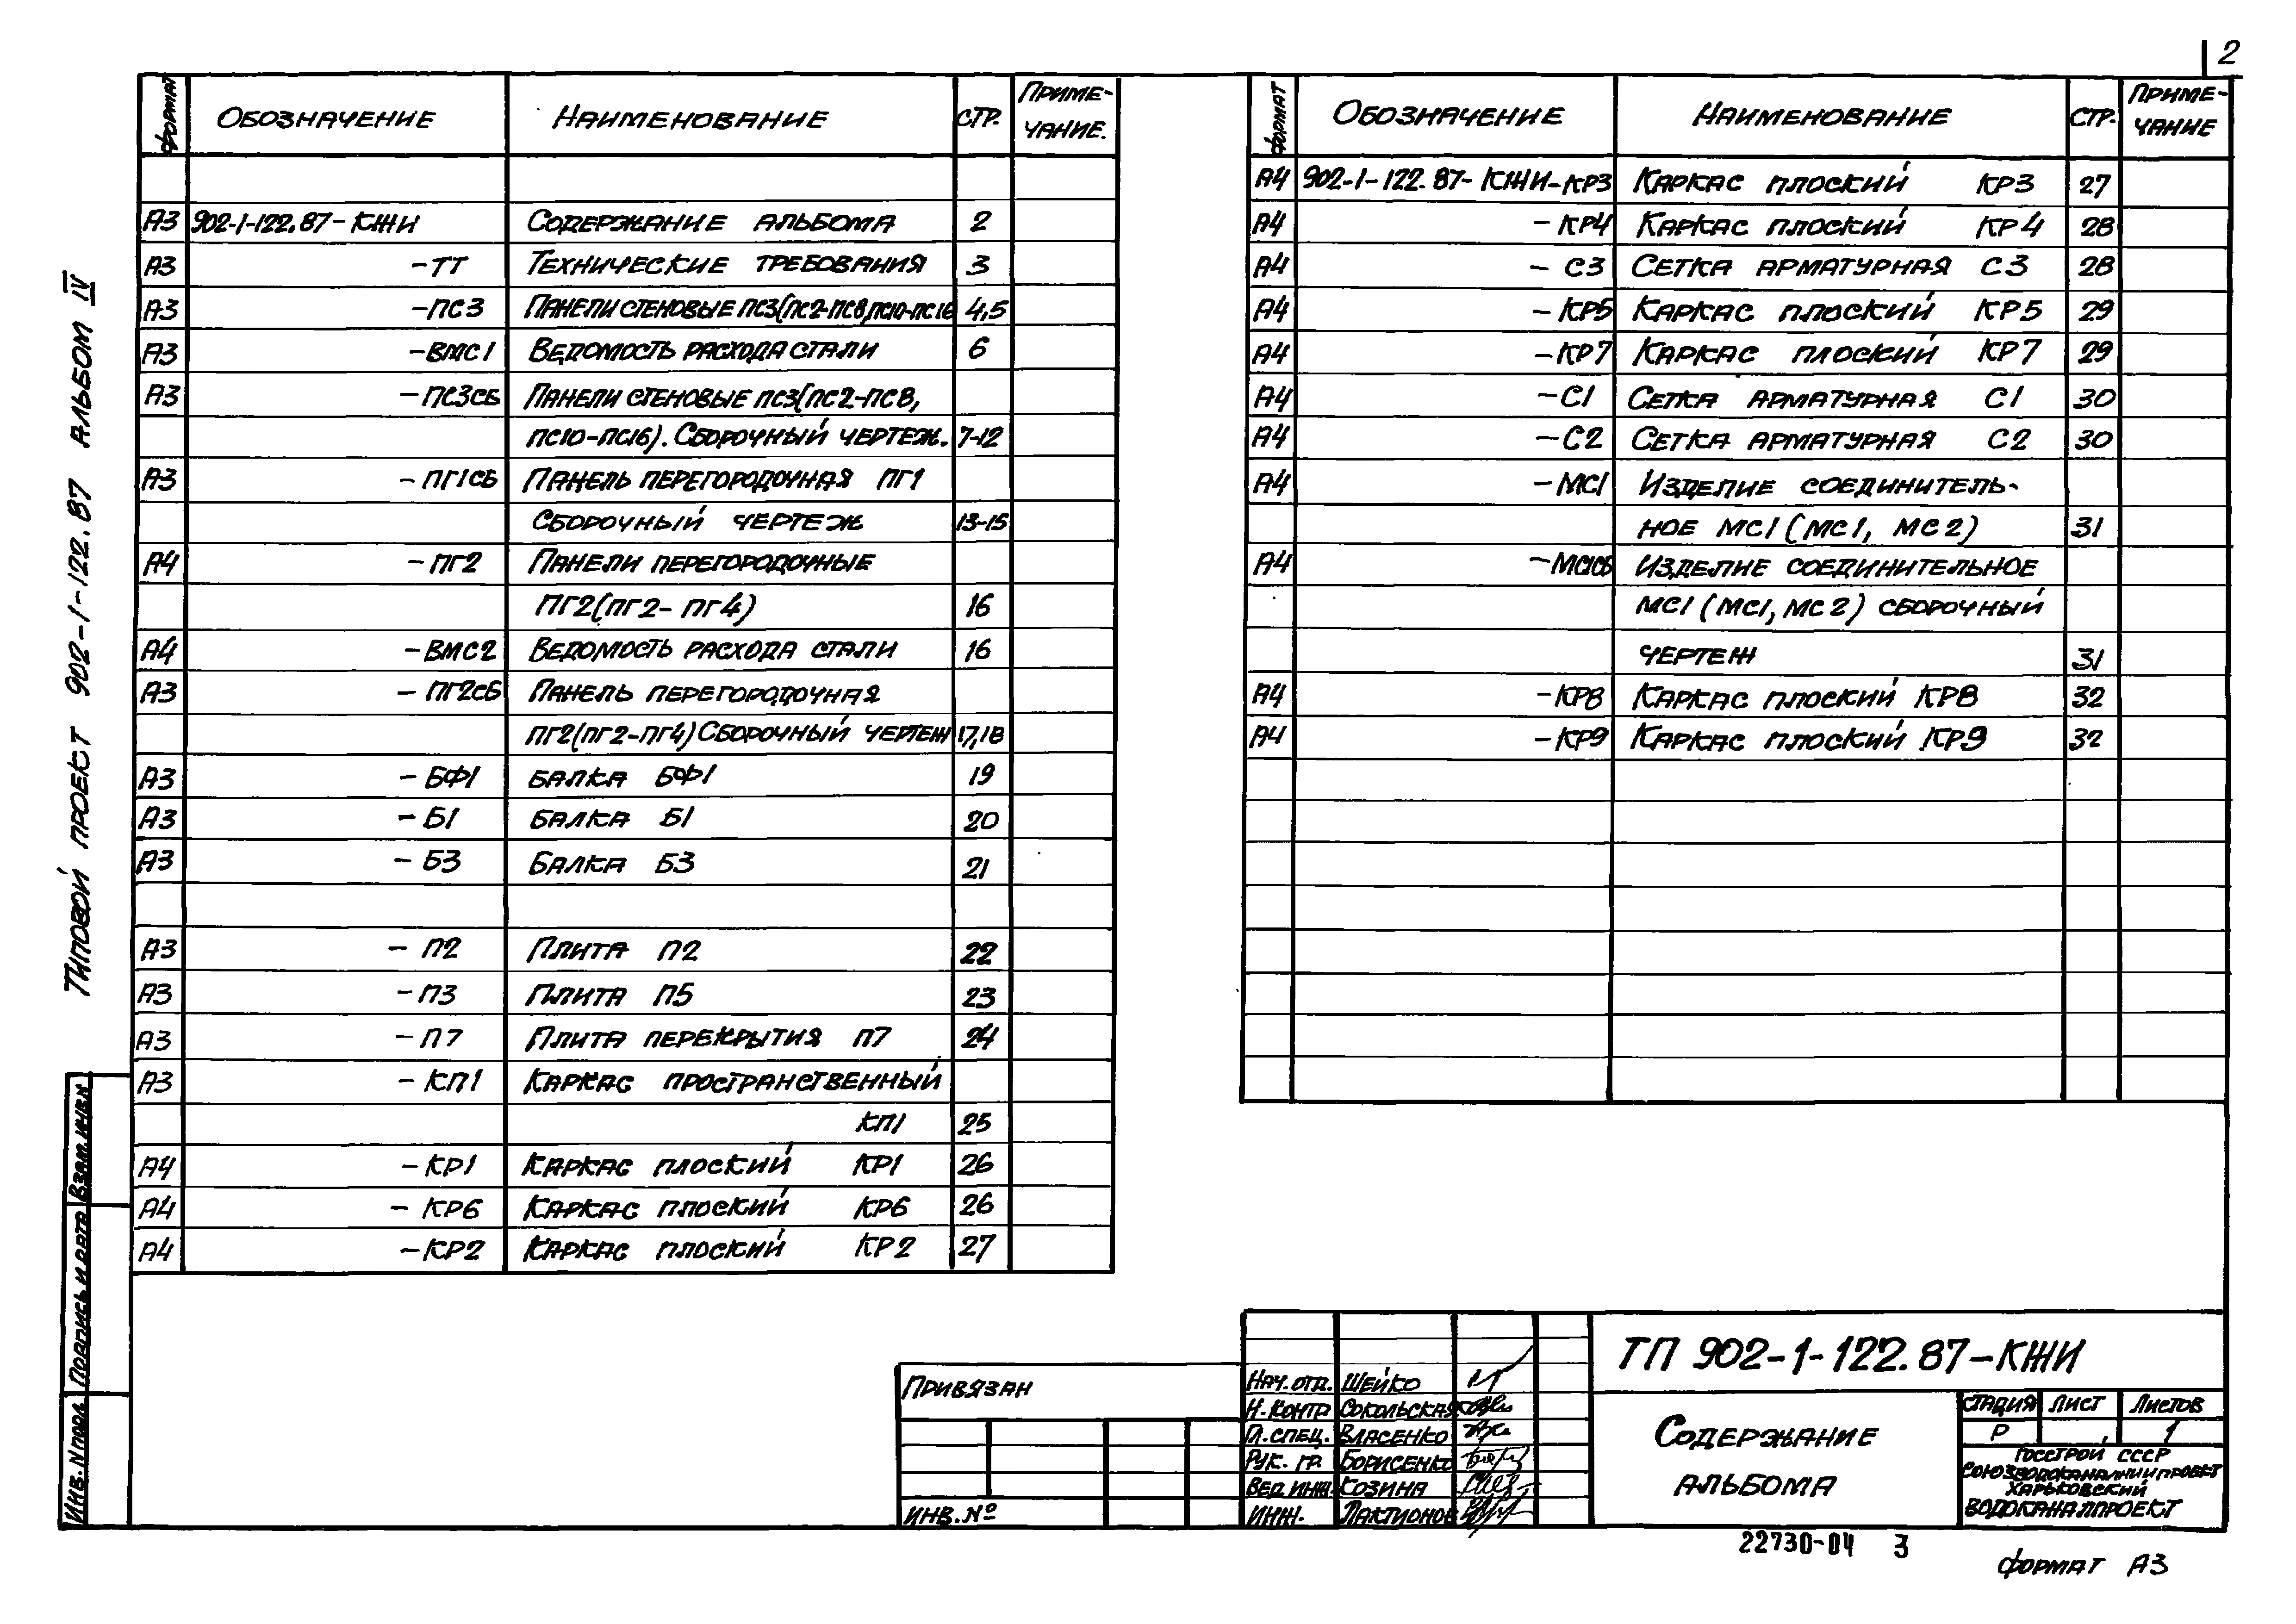 2
Формат Обозначение Наименование Стр. Приме-
чание.
А3 902-1-122.87-КЖИ Содержание альбома 2
А3 -ТТ Технические требования 3
А3 -ПС3 Панели стеновые ПС3(ПС2-ПС8,ПС10-ПС16 4,5
А3 -ВМС1 Ведомость расхода стали 6
А3 -ПС3СБ Панели стеновые ПС3(ПС2-ПС8,
ПС10-ПС16). Сборочный чертеж. 7-12
А3 -ПГ1СБ Панель перегородочная ПГ1
Сборочный чертеж 13-15
А4 -ПГ2 Панели перегородочные
ПГ2(ПГ2-ПГ4) 16
А4 -ВМС2 Ведомость расхода стали 16
А3 -ПГ2СБ Панель перегородочная
ПГ2(ПГ2-ПГ4) Сборочный чертеж 17,18
А3 -БФ1 Балка БФ1 19
А3 -Б1 Балка Б1 20
А3 -Б3 Балка Б3 21
А3 -П2 Плита П2 22
А3 -П3 Плита П5 23
А3 -П7 Плита перекрытия П7 24
А3 -КП1 Каркас пространственный
КП1 25
А4 -КР1 Каркас плоский КР1 26
А4 -КР6 Каркас плоский КР6 26
А4 -КР2 Каркас плоский КР2 27
Формат Обозначение Наименование Стр. Приме-
чание
А4 902-1-122.87-КЖИ-КР3 Каркас плоский КР3 27
А4 -КР4 Каркас плоский КР4 28
А4 -С3 Сетка арматурная С3 28
А4 -КР5 Каркас плоский КР5 29
А4 -КР7 Каркас плоский КР7 29
А4 -С1 Сетка арматурная С1 30
А4 -С2 Сетка арматурная С2 30
А4 -МС1 Изделие соединитель-
ное МС1(МС1, МС2) 31
А4 -МС1СБ Изделие соединительное
МС1(МС1, МС2) сборочный
чертеж 31
А4 -КР8 Каркас плоский КР8 32
А4 -КР9 Каркас плоский КР9 32
Типовой проект 902-1-122.87 Альбом IV
Взам.инв.№
Подпись и дата
Инв.№подл.
Привязан
Инв.№
Нач.отд. Шейко
Н.контр Сокольская
Гл.спец. Власенко
Рук. гр. Борисенко
Вед.инж. Козина
Инж. Лактионов
ТП 902-1-122.87-КЖИ
Содержание
альбома
Стадия Лист Листов
Р 1
Госстрой СССР
Союзводоканалниипроект
Харьковский
Водоканалпроект
22730-04 3
Формат А3